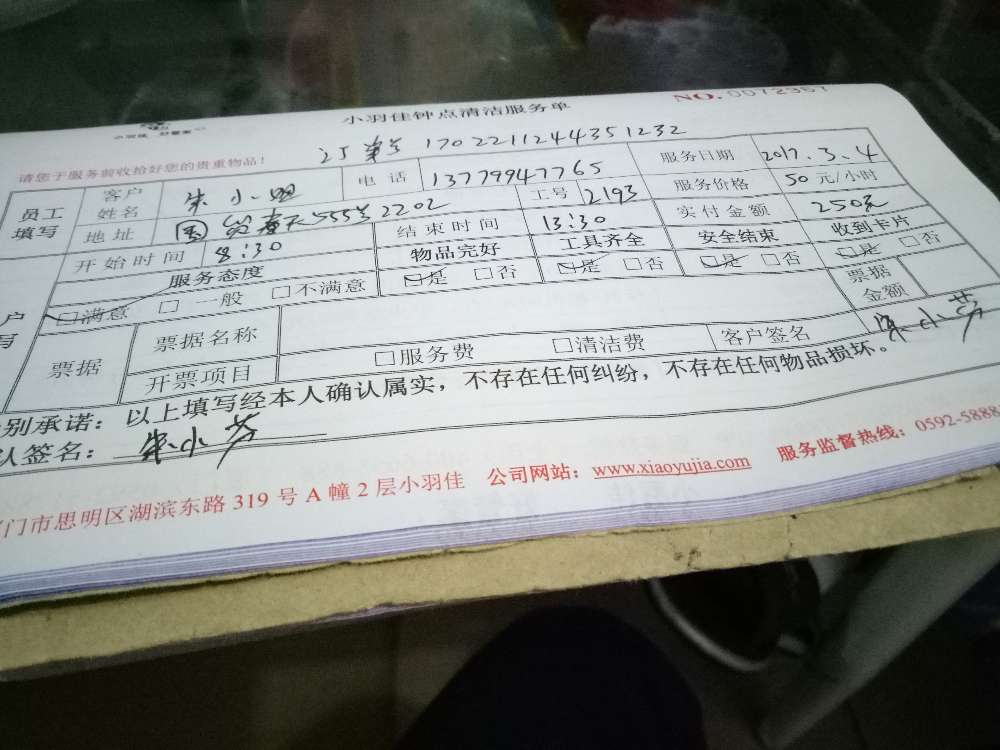 小羽佳钟点清洁服务单
NO. 0072351
小羽佳 好管家
请您于服务前收拾好您的贵重物品!
订单号 1702211244351232
员工填写 客户姓名 朱小姐 电话 13779947765 服务日期 2017.3.4
地址 国贸春天555号2202 工号 2193 服务价格 50元/小时
开始时间 8:30 结束时间 13:30 实付金额 250元
服务态度 物品完好 工具齐全 安全结束 收到卡片
□满意 □一般 □不满意 □是 □否 □是 □否 □是 □否 □是 □否
票据 票据名称 票据金额
开票项目 □服务费 □清洁费 客户签名 朱小芳
别承诺：以上填写经本人确认属实，不存在任何纠纷，不存在任何物品损坏。
认签名：朱小芳
门市思明区湖滨东路 319 号 A 幢 2 层小羽佳 公司网站：www.xiaoyujia.com 服务监督热线：0592-5888